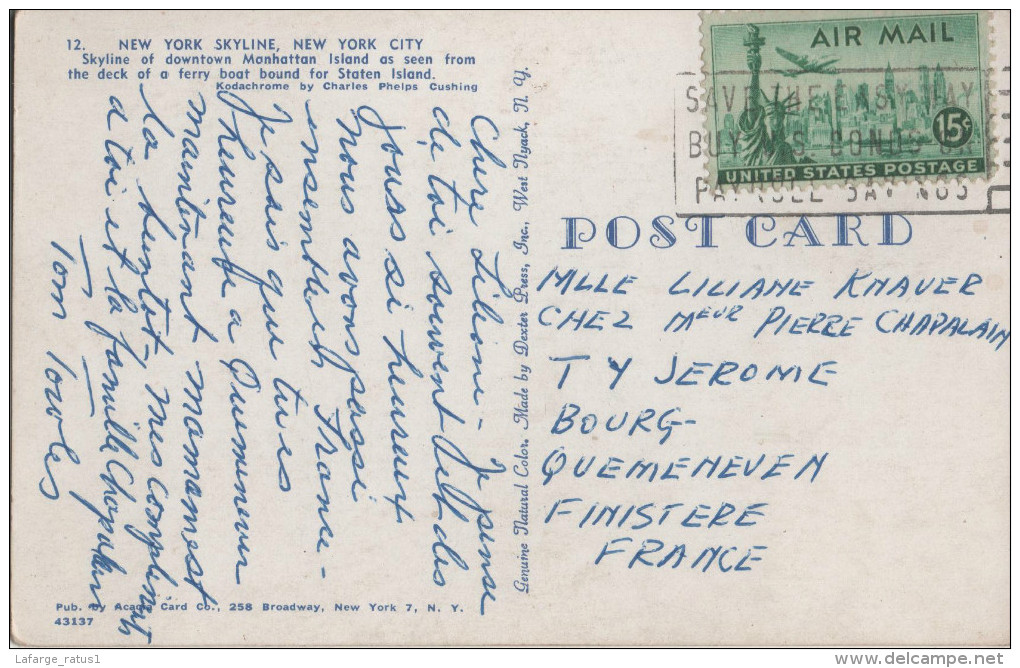 12. NEW YORK SKYLINE, NEW YORK CITY
Skyline of downtown Manhattan Island as seen from
the deck of a ferry boat bound for Staten Island.
Kodachrome by Charles Phelps Cushing
Chere Liliane Je pense
de toi souvent et des
jours si heureux
nous avons passé
ensembles France -
Je sais que tu es
heureuse a Quemeneven
maintenant
la bientot, mes compliments
a toi et la famille Chapalain
Tom Towles
Genuine Natural Color. Made by Dexter Press, Inc., West Nyack, N. Y.
AIR MAIL
15¢
UNITED STATES POSTAGE
SAVE THE EASY WAY
BUY U.S. BONDS
PAYROLL SAVINGS
POST CARD
MLLE LILIANE KNAVER
CHEZ MEUR PIERRE CHAPALAIN
TY JEROME
BOURG-
QUEMENEVEN
FINISTERE
FRANCE
Pub. by Acacia Card Co., 258 Broadway, New York 7, N. Y.
43137
Lafarge_ratus1
www.delcampe.net